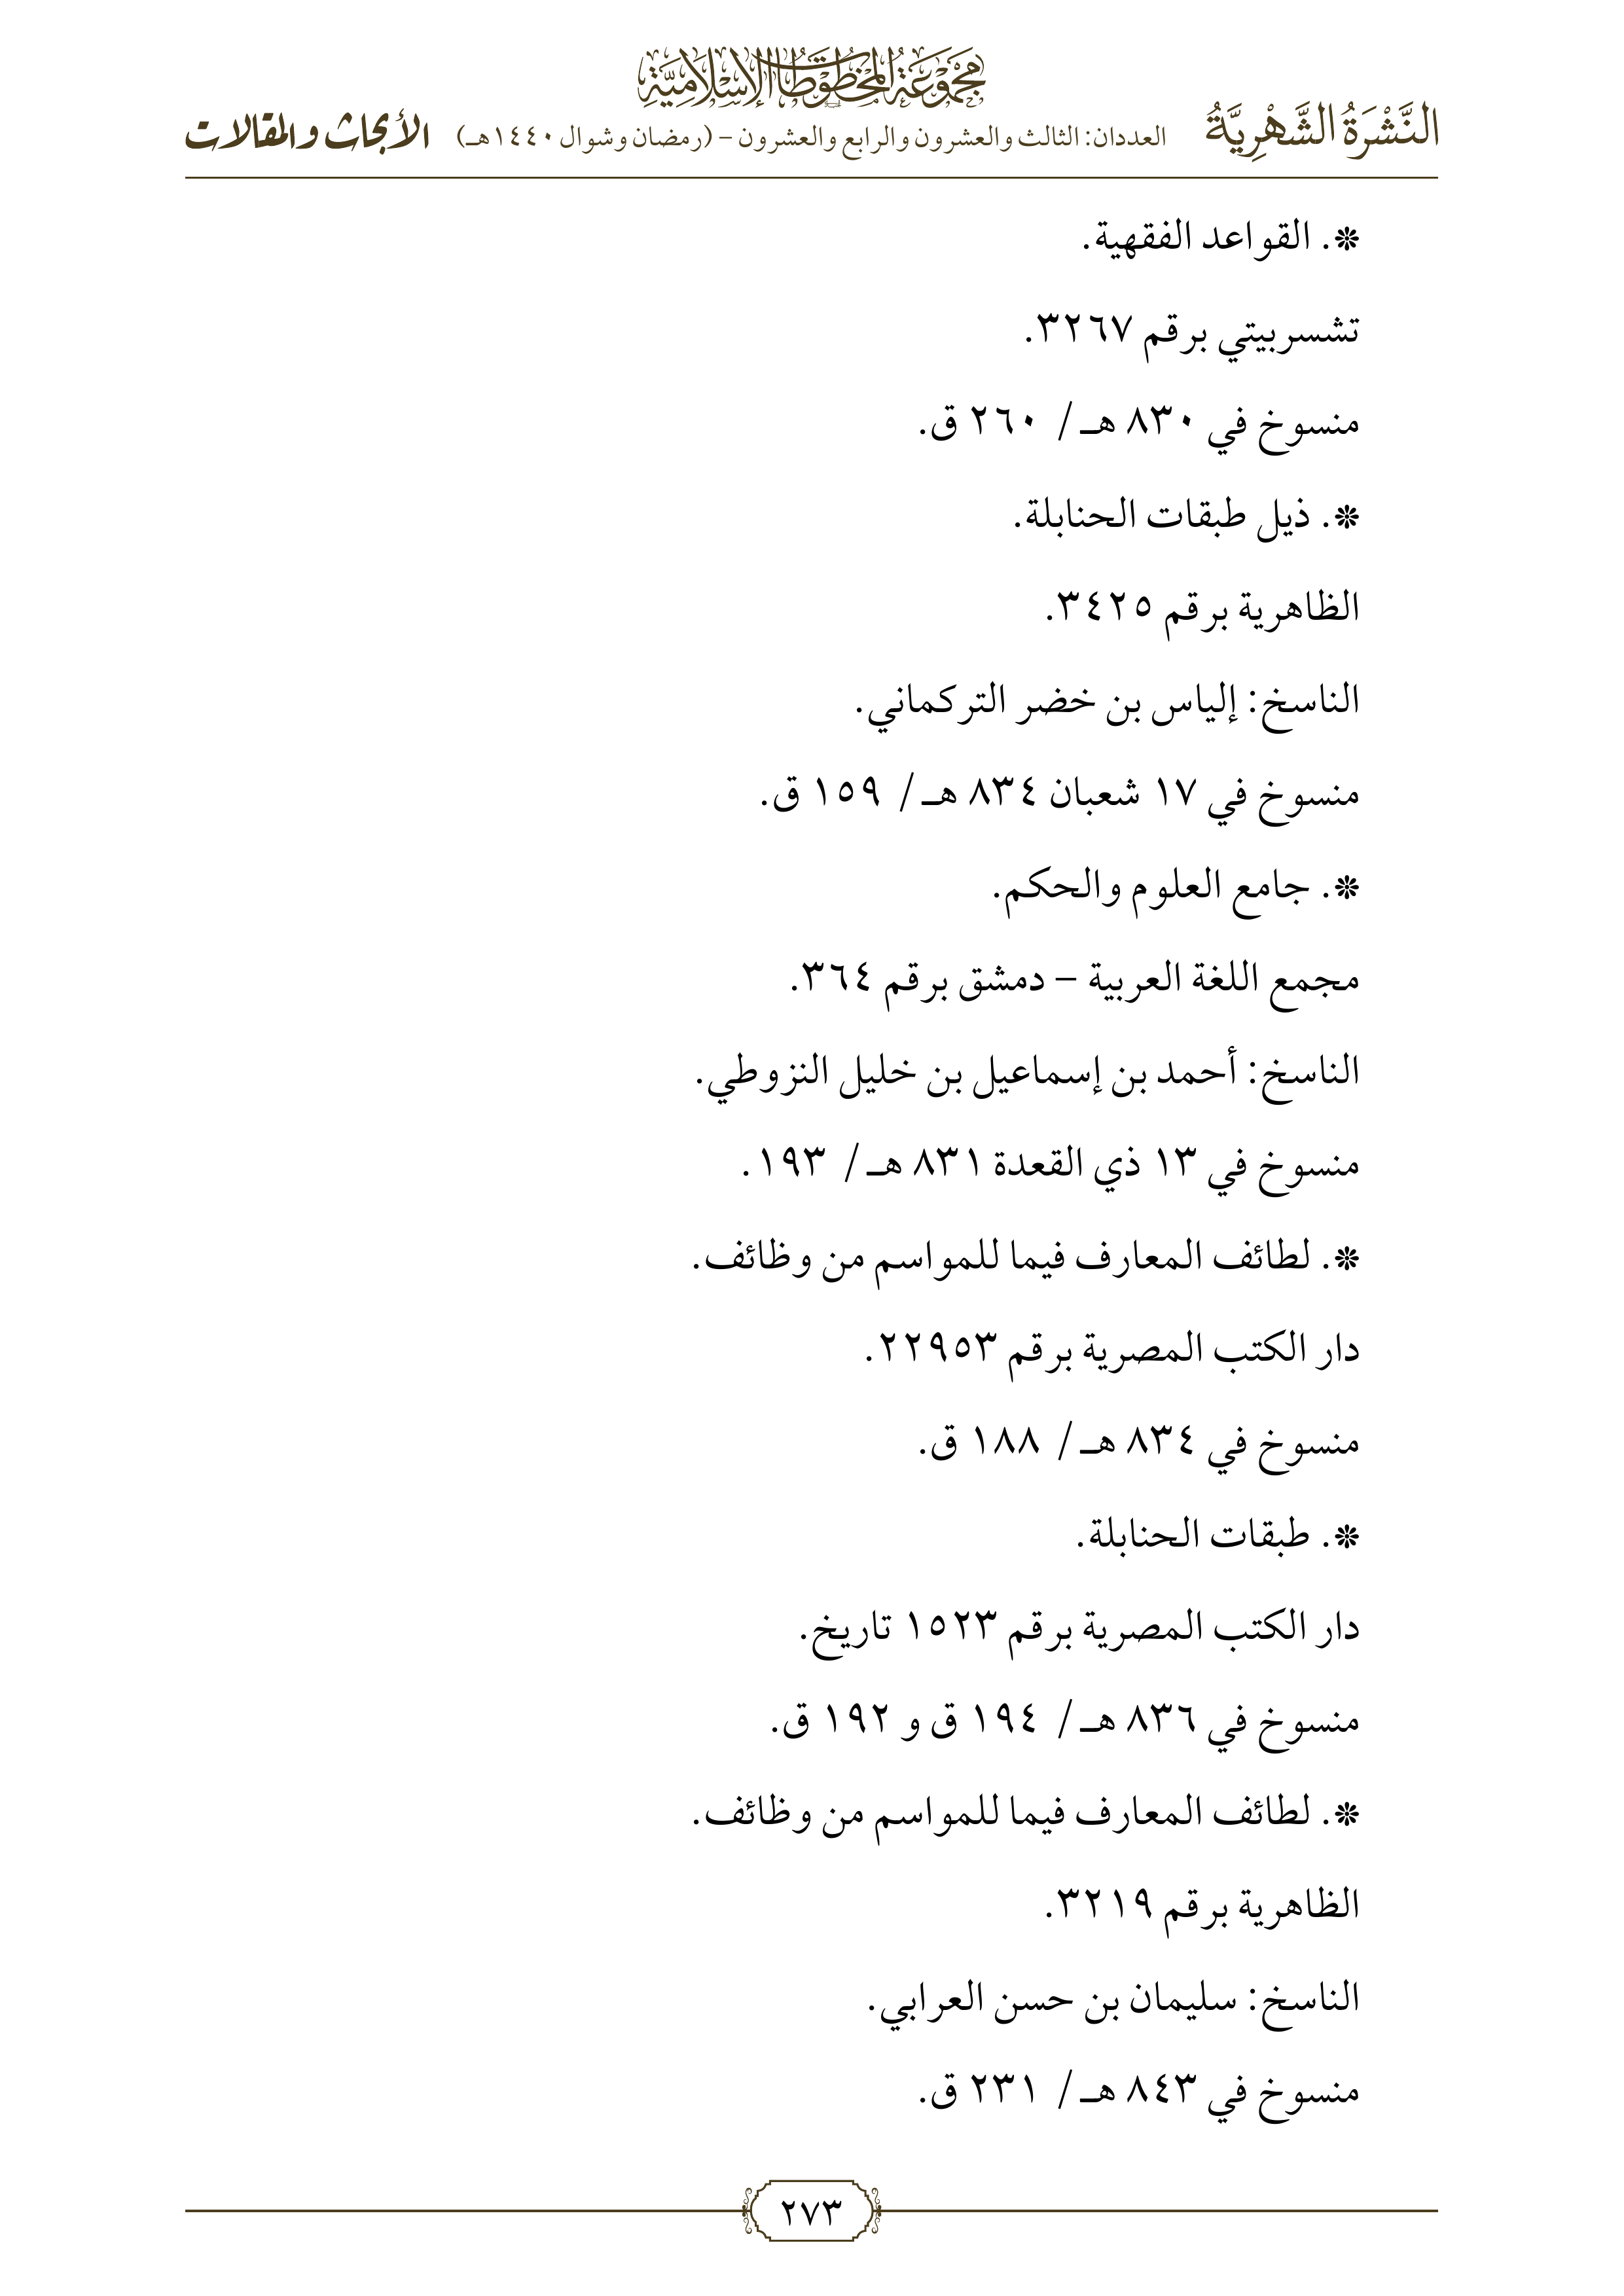 مجموعة المخطوطات الإسلامية
النَّشْرَةُ الشَّهْرِيَّةُ العددان: الثالث والعشرون والرابع والعشرون – (رمضان وشوال ١٤٤٠هـ) الأبحاث والمقالات
❊. القواعد الفقهية.
تشسربيتي برقم ٣٢٦٧.
منسوخ في ٨٣٠ هـ/ ٢٦٠ ق.
❊. ذيل طبقات الحنابلة.
الظاهرية برقم ٣٤٢٥.
الناسخ: إلياس بن خضر التركماني.
منسوخ في ١٧ شعبان ٨٣٤ هـ/ ١٥٩ ق.
❊. جامع العلوم والحكم.
مجمع اللغة العربية – دمشق برقم ٣٦٤.
الناسخ: أحمد بن إسماعيل بن خليل النزوطي.
منسوخ في ١٣ ذي القعدة ٨٣١ هـ/ ١٩٣.
❊. لطائف المعارف فيما للمواسم من وظائف.
دار الكتب المصرية برقم ٢٢٩٥٣.
منسوخ في ٨٣٤ هـ/ ١٨٨ ق.
❊. طبقات الحنابلة.
دار الكتب المصرية برقم ١٥٢٣ تاريخ.
منسوخ في ٨٣٦ هـ/ ١٩٤ ق و ١٩٢ ق.
❊. لطائف المعارف فيما للمواسم من وظائف.
الظاهرية برقم ٣٢١٩.
الناسخ: سليمان بن حسن العرابي.
منسوخ في ٨٤٣ هـ/ ٢٣١ ق.
٢٧٣